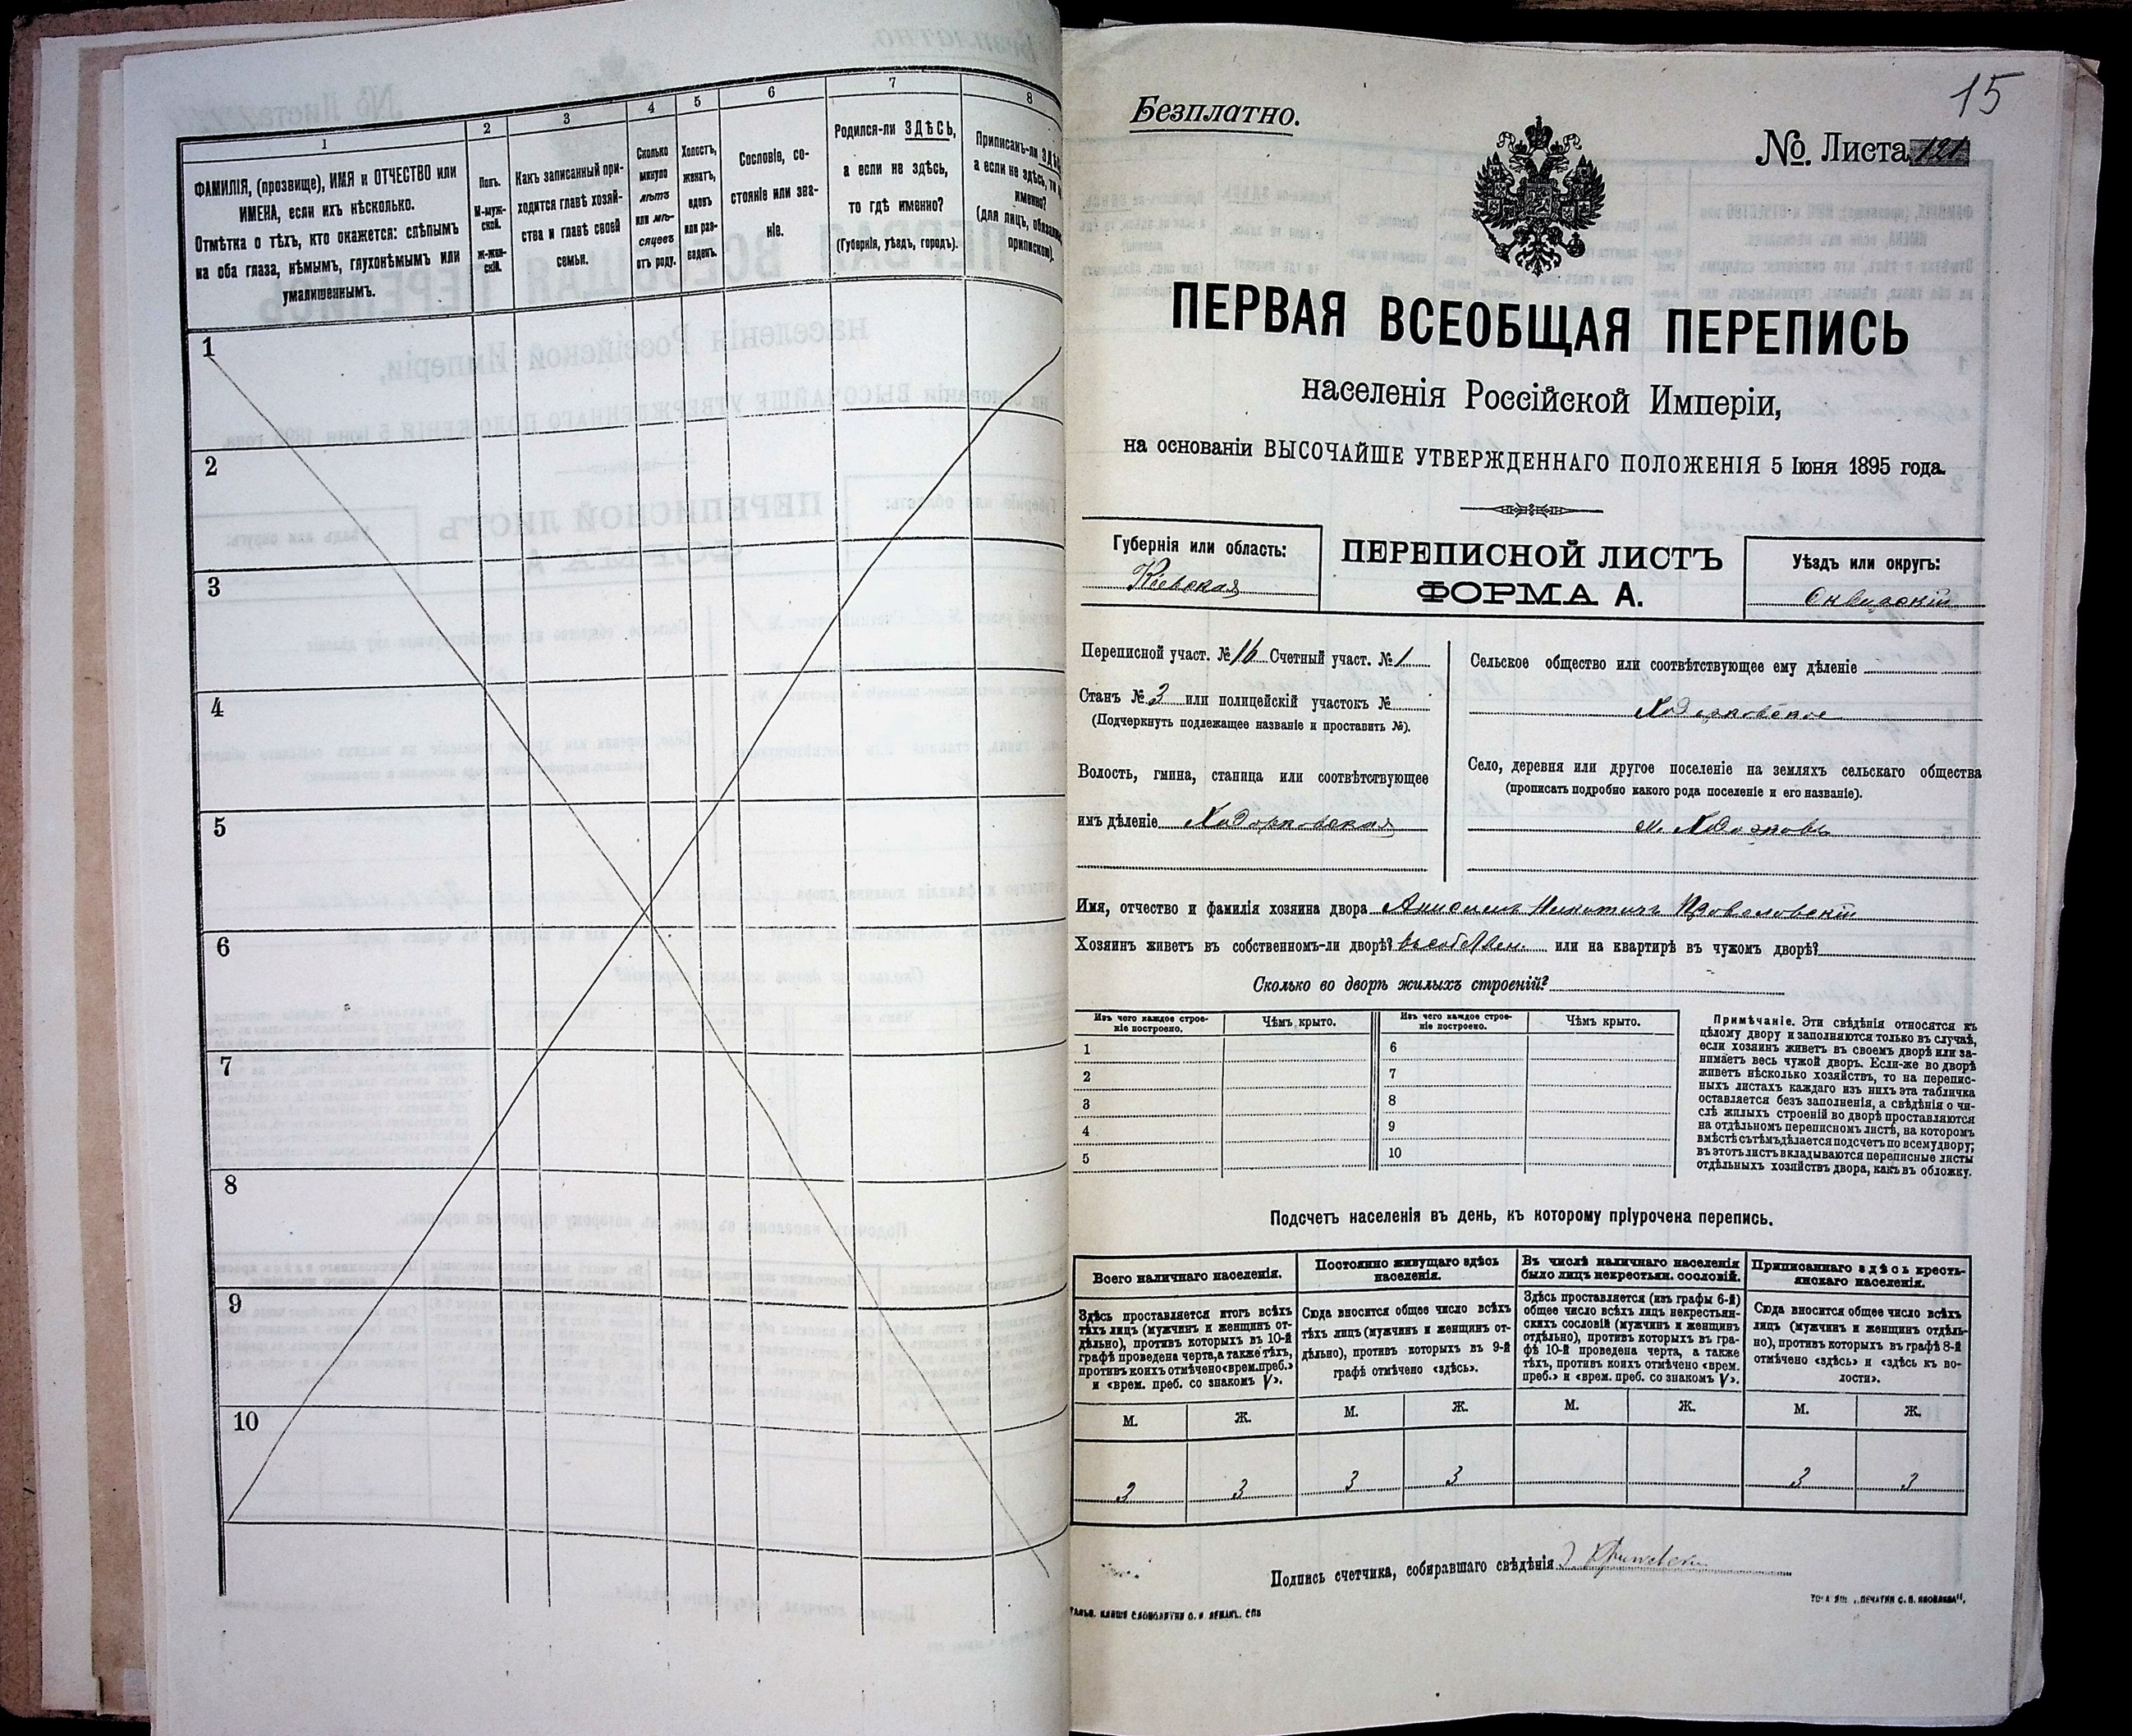 1
2
3
4
5
6
7
8
ФАМИЛІЯ, (прозвище), ИМЯ и ОТЧЕСТВО или
ИМЕНА, если ихъ нѣсколько.
Отмѣтка о тѣхъ, кто окажется: слѣпымъ
на оба глаза, нѣмымъ, глухонѣмымъ или
умалишеннымъ.
Полъ.
М-муж-
ской.
Ж-жен-
скій.
Какъ записанный при-
ходится главѣ хозяй-
ства и главѣ своей
семьи.
Сколько
минуло
лѣтъ
или мѣ-
сяцевъ
отъ роду.
Холостъ,
женатъ,
вдовъ
или раз-
веденъ.
Сословіе, со-
стояніе или зва-
ніе.
Родился-ли ЗДѢСЬ,
а если не здѣсь,
то гдѣ именно?
(Губернія, уѣздъ, городъ).
Приписанъ-ли
а если не здѣсь, то
именно?
(для лицъ,
припискою).
1
2
3
4
5
6
7
8
9
10
15
Безплатно.
№ Листа 121
ПЕРВАЯ ВСЕОБЩАЯ ПЕРЕПИСЬ
населенія Россійской Имперіи,
на основаніи ВЫСОЧАЙШЕ УТВЕРЖДЕННАГО ПОЛОЖЕНІЯ 5 Іюня 1895 года.
Губернія или область:
Кіевская
ПЕРЕПИСНОЙ ЛИСТЪ
ФОРМА А.
Уѣздъ или округъ:
Сквирскій
Переписной участ. № 16 Счетный участ. № 1
Станъ № 3 или полицейскій участокъ №
(Подчеркнуть подлежащее названіе и проставить №).
Волость, гмина, станица или соотвѣтствующее
имъ дѣленіе Ходорковская
Сельское общество или соотвѣтствующее ему дѣленіе
Ходорковское
Село, деревня или другое поселеніе на земляхъ сельскаго общества
(прописать подробно какого рода поселеніе и его названіе).
м. Ходорковъ
Имя, отчество и фамилія хозяина двора Анисимъ Никитичъ
Хозяинъ живетъ въ собственномъ-ли дворѣ? въ собствен. или на квартирѣ въ чужомъ дворѣ?
Сколько во дворѣ жилыхъ строеній?
Изъ чего каждое строе-
ніе построено.
Чѣмъ крыто.
Изъ чего каждое строе-
ніе построено.
Чѣмъ крыто.
1
2
3
4
5
6
7
8
9
10
Примѣчаніе. Эти свѣдѣнія относятся къ
цѣлому двору и заполняются только въ случаѣ,
если хозяинъ живетъ въ своемъ дворѣ или за-
нимаетъ весь чужой дворъ. Если-же во дворѣ
живетъ нѣсколько хозяйствъ, то на перепис-
ныхъ листахъ каждаго изъ нихъ эта табличка
оставляется безъ заполненія, а свѣдѣнія о чи-
слѣ жилыхъ строеній во дворѣ проставляются
на отдѣльномъ переписномъ листѣ, на которомъ
вмѣстѣ съ тѣмъ дѣлается подсчетъ по всему двору;
въ этотъ листъ вкладываются переписные листы
отдѣльныхъ хозяйствъ двора, какъ въ обложку.
Подсчетъ населенія въ день, къ которому пріурочена перепись.
Всего наличнаго населенія.
Здѣсь проставляется итогъ всѣхъ
тѣхъ лицъ (мужчинъ и женщинъ от-
дѣльно), противъ которыхъ въ 10-й
графѣ проведена черта, а также тѣхъ,
противъ коихъ отмѣчено «врем. преб.»
и «врем. преб. со знакомъ V».
Постоянно живущаго здѣсь
населенія.
Сюда вносится общее число всѣхъ
тѣхъ лицъ (мужчинъ и женщинъ от-
дѣльно), противъ которыхъ въ 9-й
графѣ отмѣчено «здѣсь».
Въ числѣ наличнаго населенія
было лицъ некрестьян. сословій.
Здѣсь проставляется (изъ графы 6-й)
общее число всѣхъ лицъ некрестьян-
скихъ сословій (мужчинъ и женщинъ
отдѣльно), противъ которыхъ въ гра-
фѣ 10-й проведена черта, а также
тѣхъ, противъ коихъ отмѣчено «врем.
преб.» и «врем. преб. со знакомъ V».
Приписаннаго здѣсь кресть-
янскаго населенія.
Сюда вносится общее число всѣхъ
лицъ (мужчинъ и женщинъ отдѣль-
но), противъ которыхъ въ графѣ 8-й
отмѣчено «здѣсь» и «здѣсь къ во-
лости».
М. Ж. М. Ж. М. Ж. М. Ж.
3 3 3 3 3 3
Подпись счетчика, собиравшаго свѣдѣнія